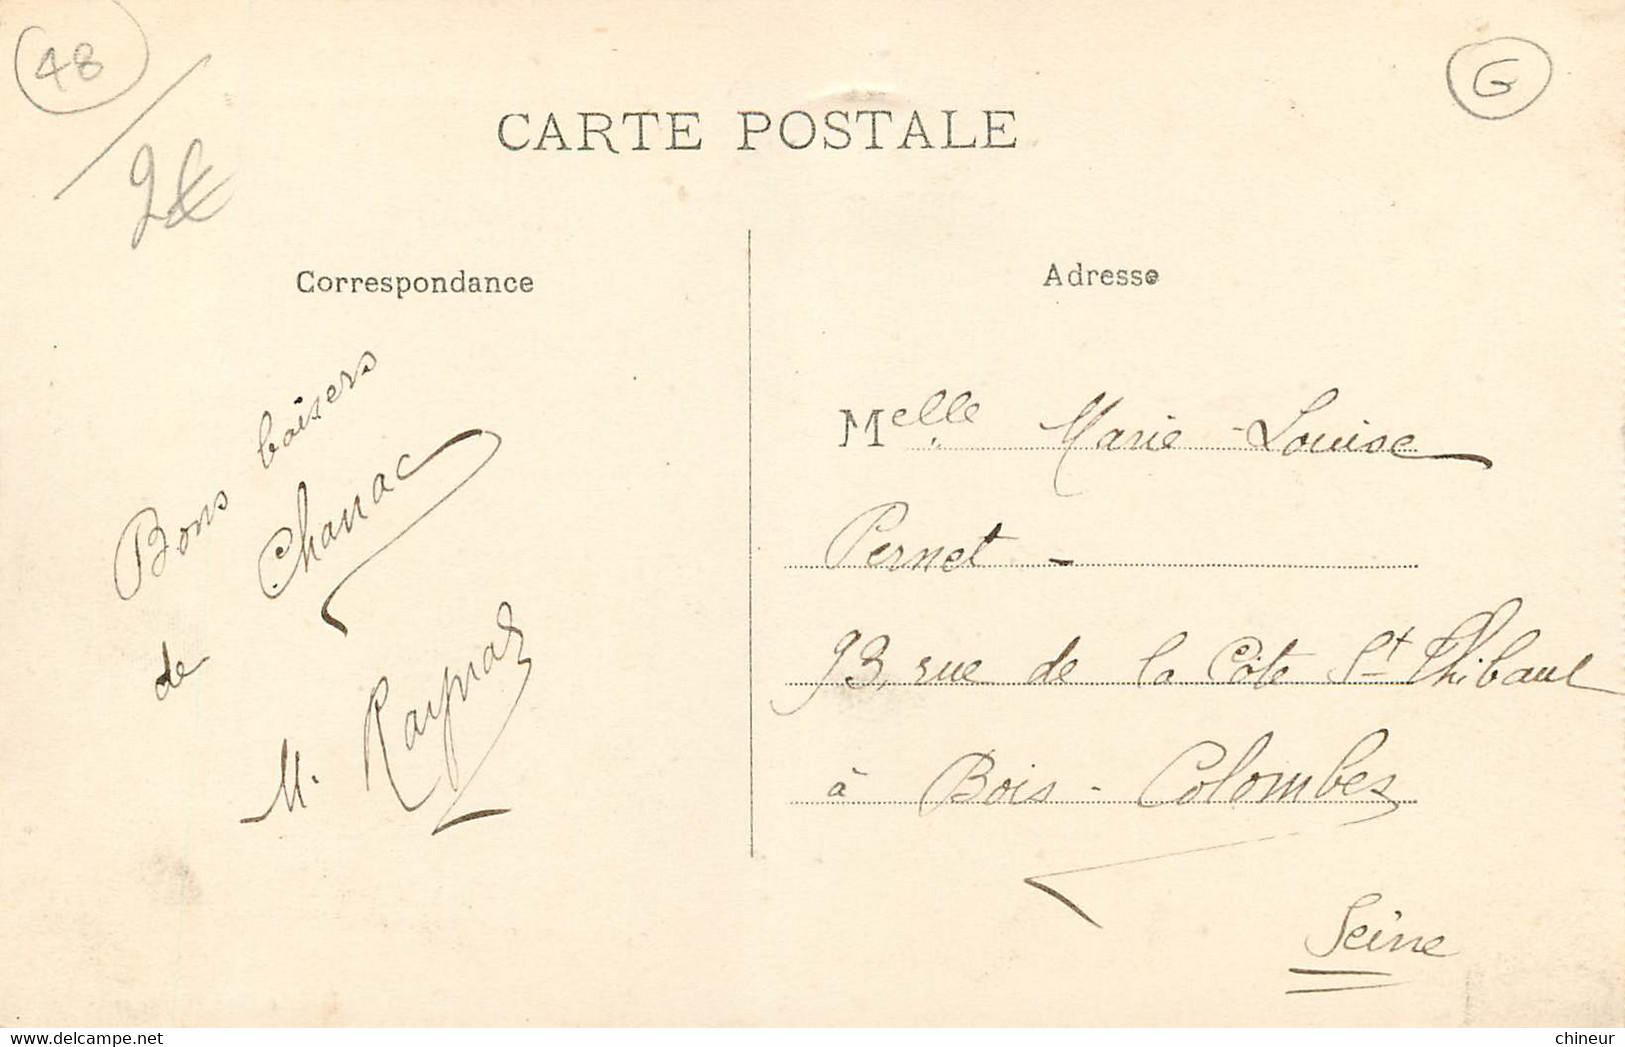 48
2€
G
CARTE POSTALE
Correspondance
Bons baisers
de Chanac
M. Raynal
Adresse
Melle Marie-Louise
Pernet -
93, rue de la Côte St Thibault
à Bois-Colombes
Seine
delcampe.net
chineur